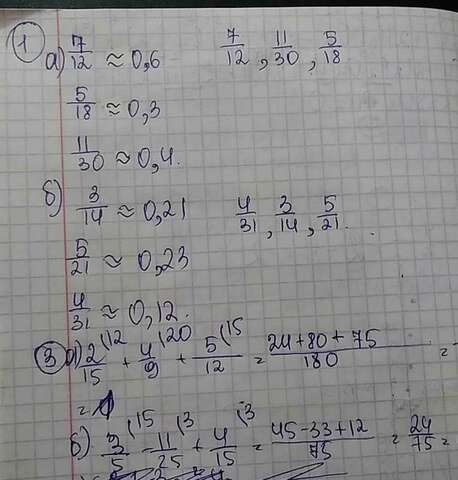 1 а) 7/12 ≈ 0,6 7/12, 11/30, 5/18
5/18 ≈ 0,3
11/30 ≈ 0,4.
б) 3/14 ≈ 0,21 4/31, 3/14, 5/21.
5/21 ≈ 0,23
4/31 ≈ 0,12.
3 а) 2/15 (12 + 4/9 (20 + 5/12 (15 = 24+80+75/180 =
=
б) 3/5 (15 - 11/25 (3 + 4/15 (3 = 45-33+12/75 = 24/75 =